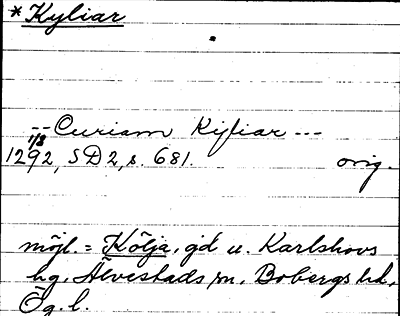 * Kyliar
-- Curiam Kyliar ---
1292 1/8, SD 2, s. 681. orig.
möjl. = Kölja, gd u. Karlshovs
hg, Älvestads sn, Bobergs hd,
Ög. l.